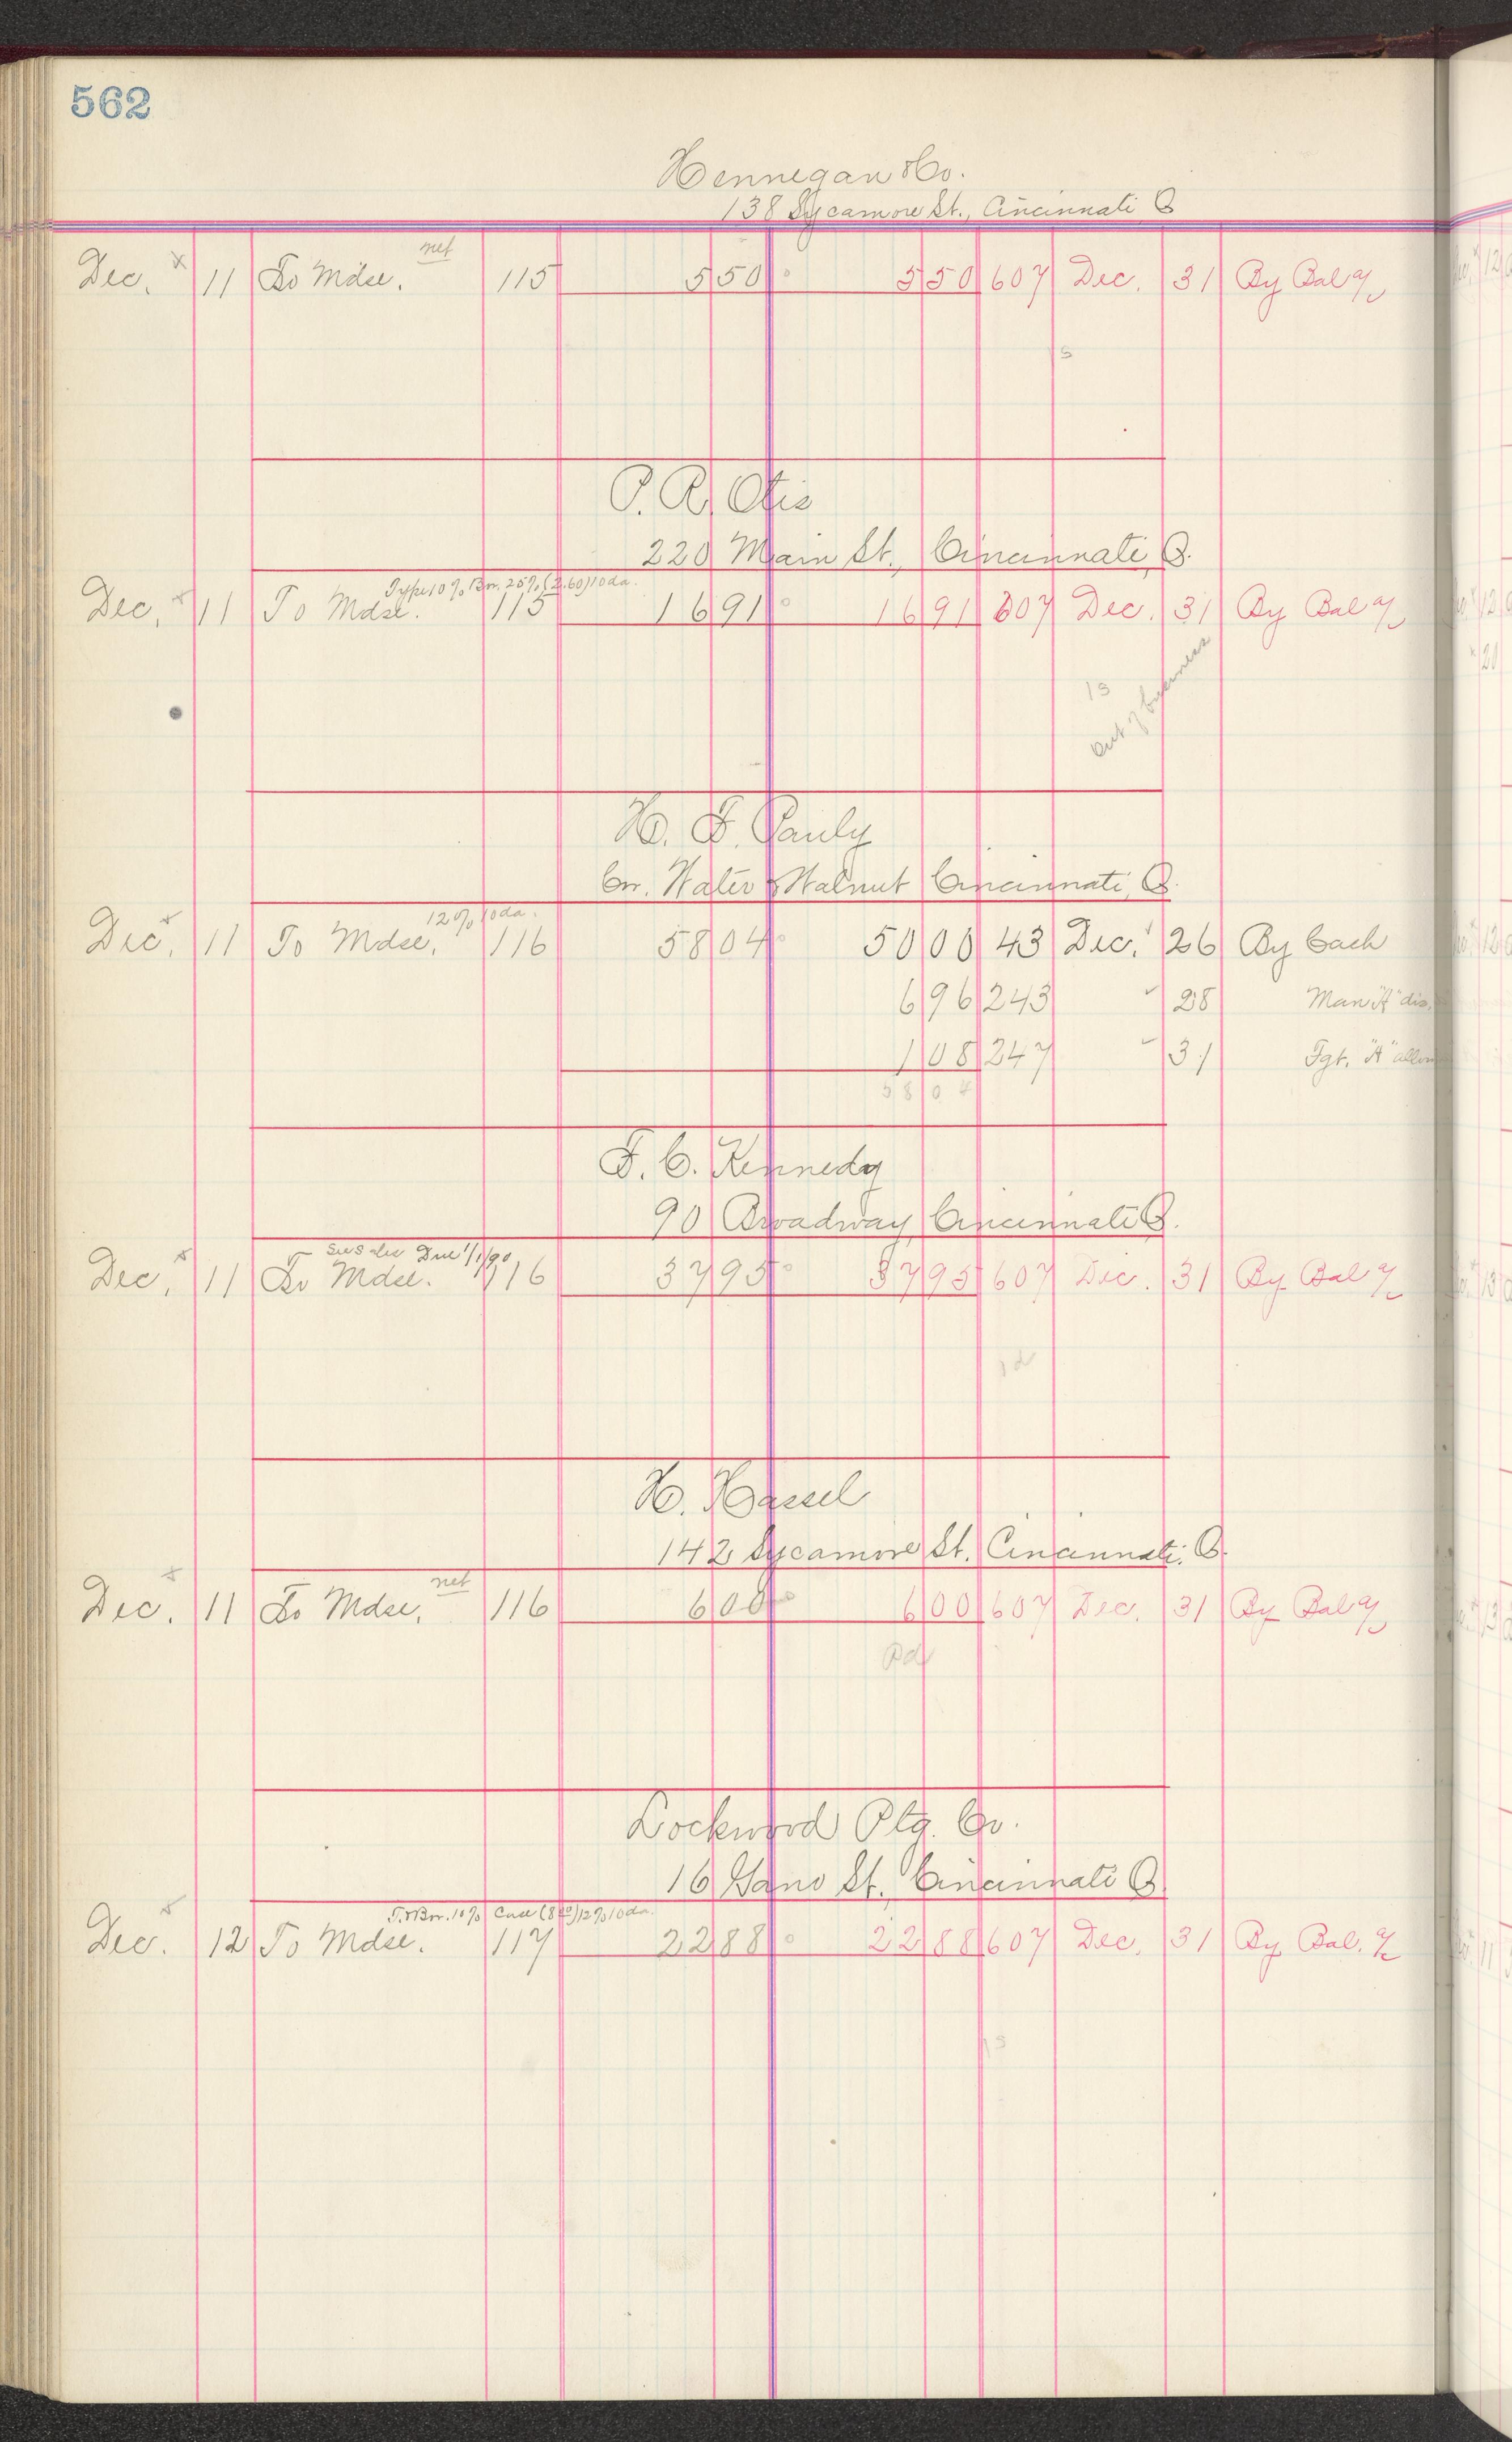 562
Hennegan & Co.
138 Sycamore St., Cincinnati O
net
Dec. x 11 To Mdse. 115 5 50 5 50 607 Dec. 31 By Bal %
P. R. Otis
220 Main St., Cincinnati, O.
Type 10% Br. 25% (2.60) 10 da.
Dec. 11 To Mdse. 115 16 91 16 91 607 Dec. 31 By Bal %
13
out of business
H. F. Pauly
Cor. Water & Walnut Cincinnati, O.
12% 10 da.
Dec. 11 To Mdse. 116 58 04 50 00 43 Dec. 26 By Cash
6 96 243 " 28 Man "A" dis.
1 08 247 " 31 Fgt. "A"
58 04
F. C. Kennedy
90 Broadway Cincinnati O.
Due 1/1/90
Dec. 11 To Mdse. 116 37 95 37 95 607 Dec. 31 By Bal %
H. Hassel
142 Sycamore St. Cincinnati. O.
net
Dec. 11 To Mdse. 116 6 00 6 00 607 Dec. 31 By Bal %
Pd
Lockwood Ptg. Co.
16 Gano St., Cincinnati O
10% Case 12% 10 da.
Dec. 12 To Mdse. 117 22 88 22 88 607 Dec. 31 By Bal. %